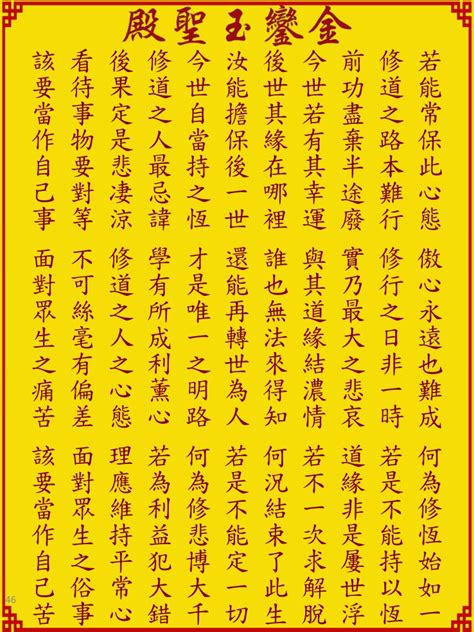 金鑾玉聖殿
若能常保此心態 傲心永遠也難成 何為修恆始如一
修道之路本難行 修行之日非一時 若是不能持以恆
前功盡棄半途廢 實乃最大之悲哀 道緣非是屢世浮
今世若有其幸運 與其道緣結濃情 若不一次求解脫
後世其緣在哪裡 誰也無法來得知 何況結束了此生
汝能擔保後一世 還能再轉世為人 若是不能定一切
今世自當持之恆 才是唯一之明路 何為修悲博大千
修道之人最忌諱 學有所成利薰心 若為利益犯大錯
後果定是悲凄涼 修道之人之心態 理應維持平常心
看待事物要對等 不可絲毫有偏差 面對眾生之俗事
該要當作自己事 面對眾生之痛苦 該要當作自己苦
46